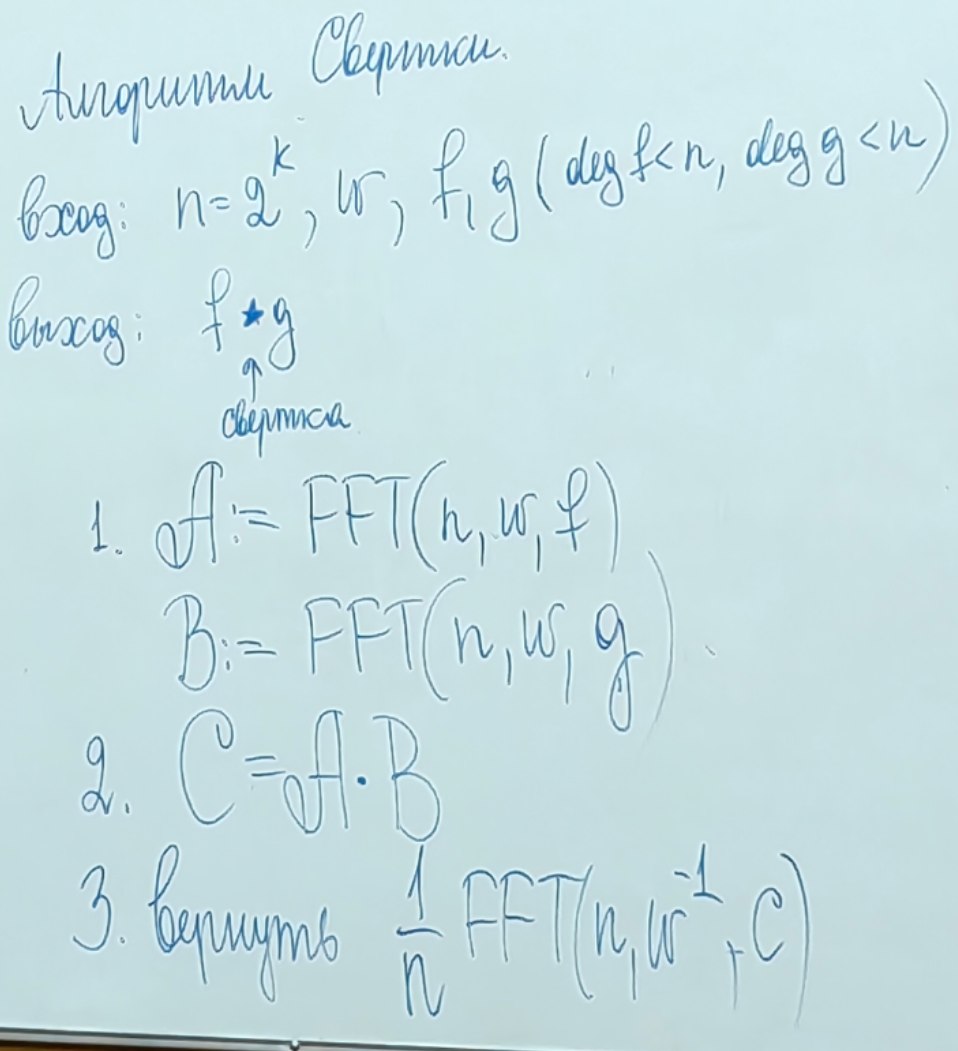 Алгоритм Свертки.
вход: n=2^k, w, f, g (deg f<n, deg g<n)
выход: f ⋆ g
↑
свёртка
1. A:= FFT(n, w, f)
B:= FFT(n, w, g)
2. C=A·B
3. вернуть 1/n FFT(n, w^-1, C)